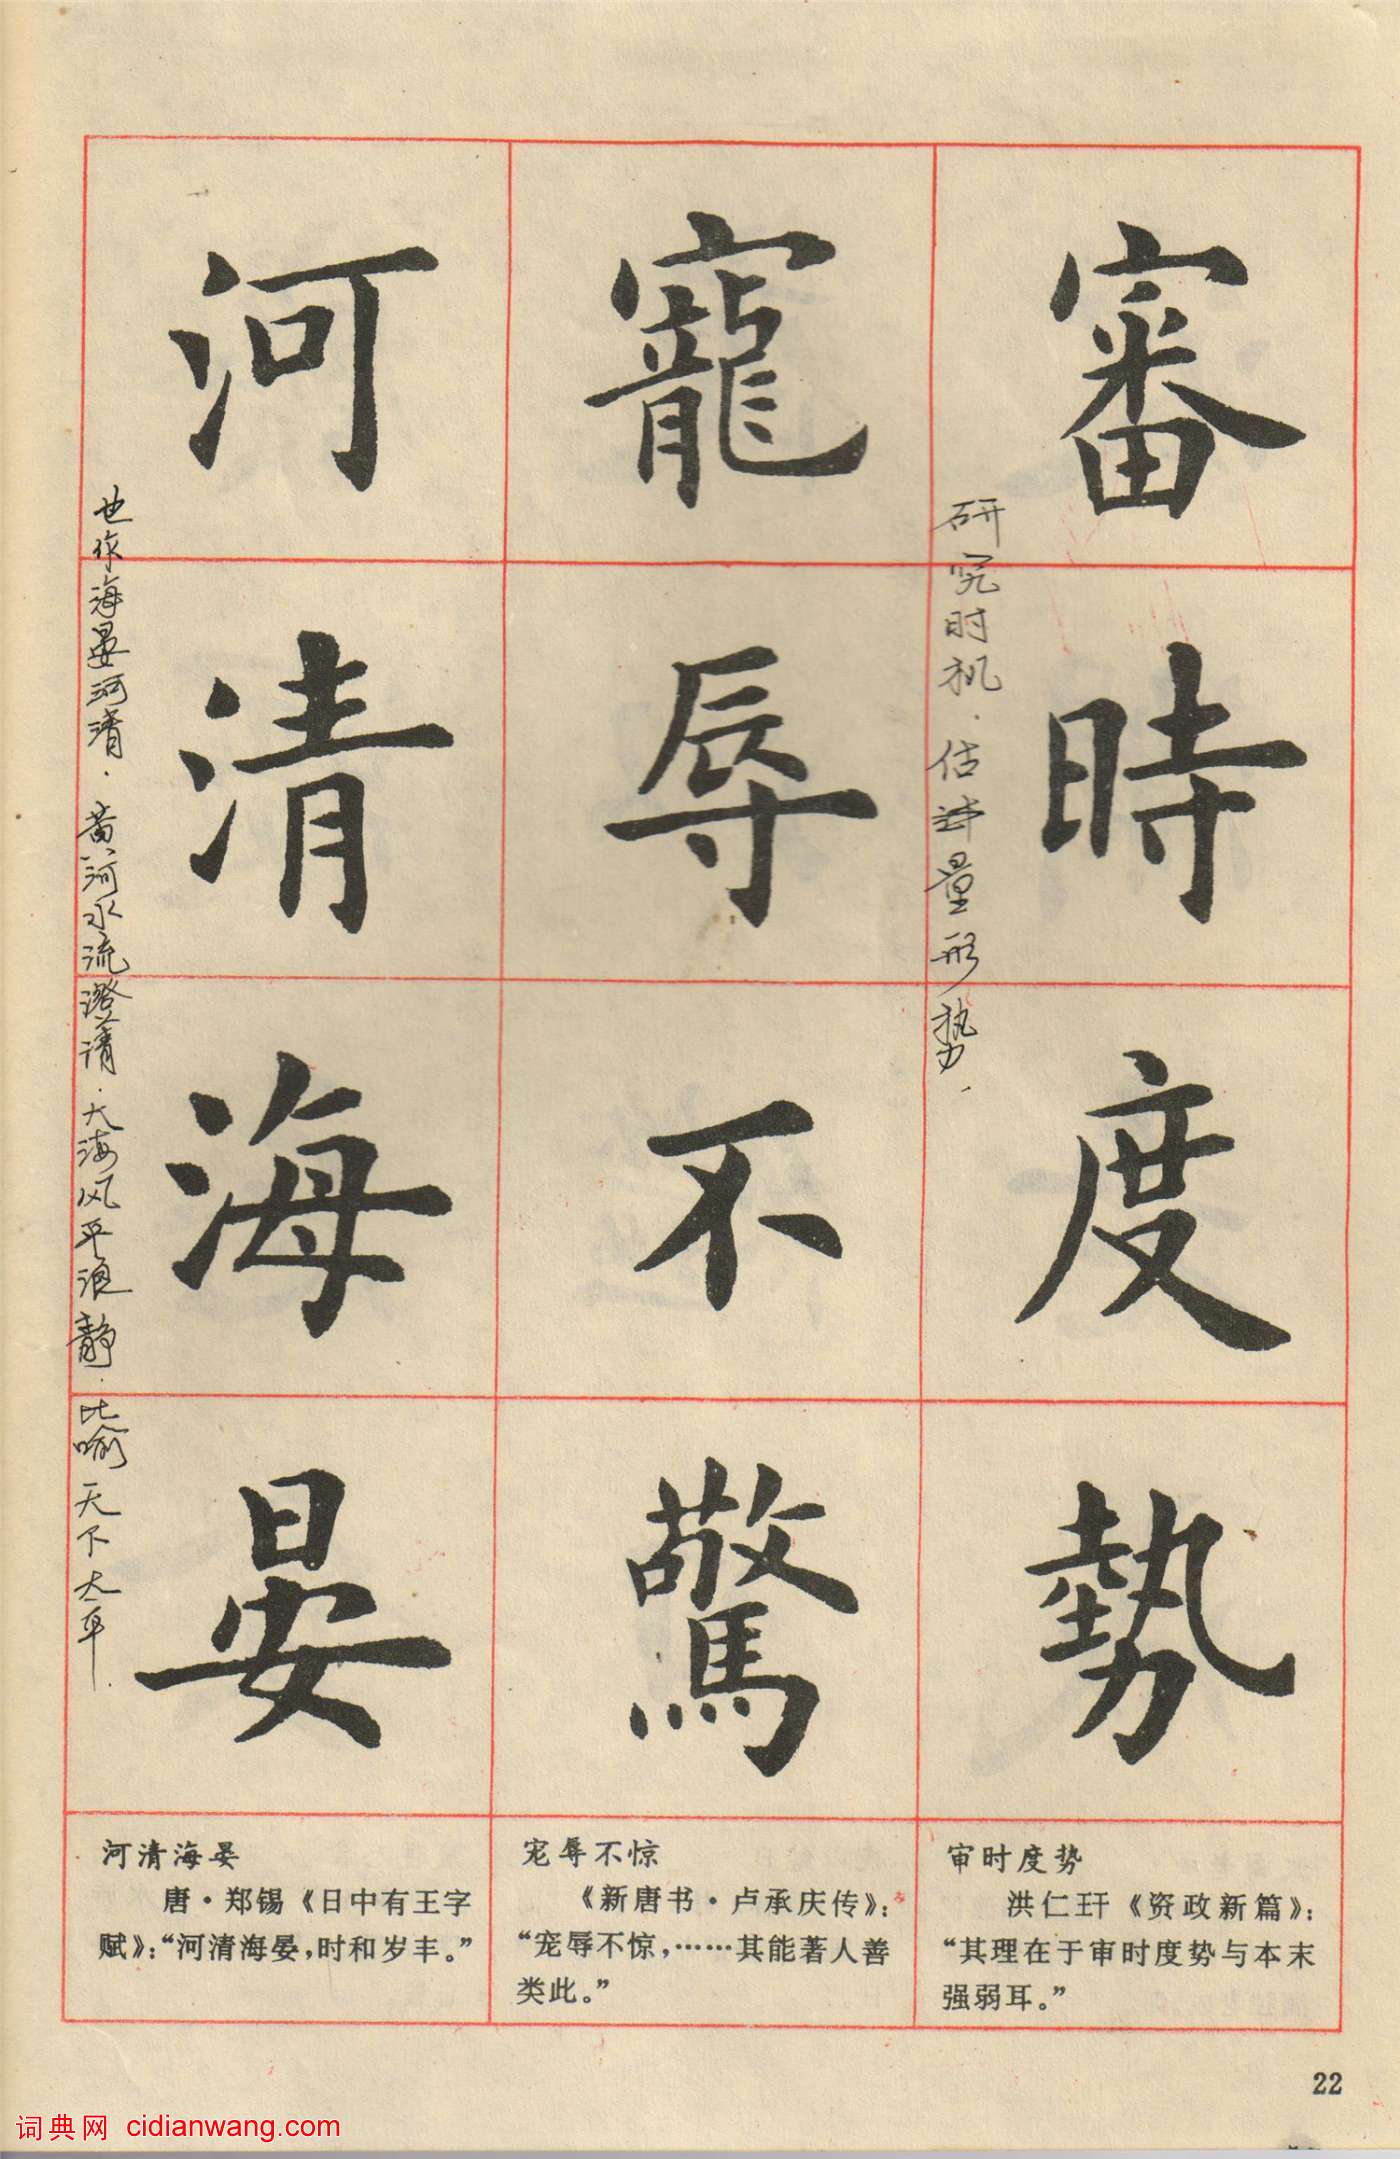 審時度勢
寵辱不驚
河清海晏
研究时机．估量形势．
也作海晏河清．黄河水流澄清．大海风平浪静．比喻天下太平．
审时度势
洪仁玕《资政新篇》：
“其理在于审时度势与本末
强弱耳。”
宠辱不惊
《新唐书·卢承庆传》：
“宠辱不惊，……其能著人善
类此。”
河清海晏
唐·郑锡《日中有王字
赋》：“河清海晏，时和岁丰。”
22
词典网 cidianwang.com